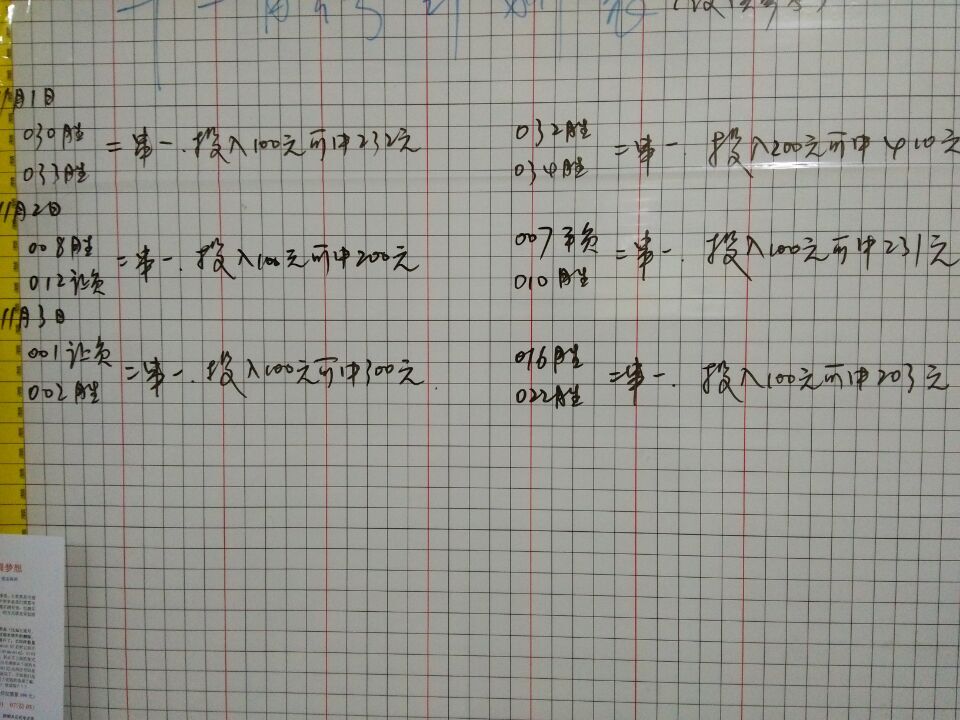 11月1日
030胜
033胜
=串一.投入100元可中232元
032胜
034胜
=串一.投入200元可中410元
11月2日
008胜
012让负
=串一.投入100元可中200元
007 负
010胜
=串一.投入100元可中231元
11月3日
001让负
002胜
=串一.投入100元可中300元
016胜
022胜
=串一.投入100元可中203元